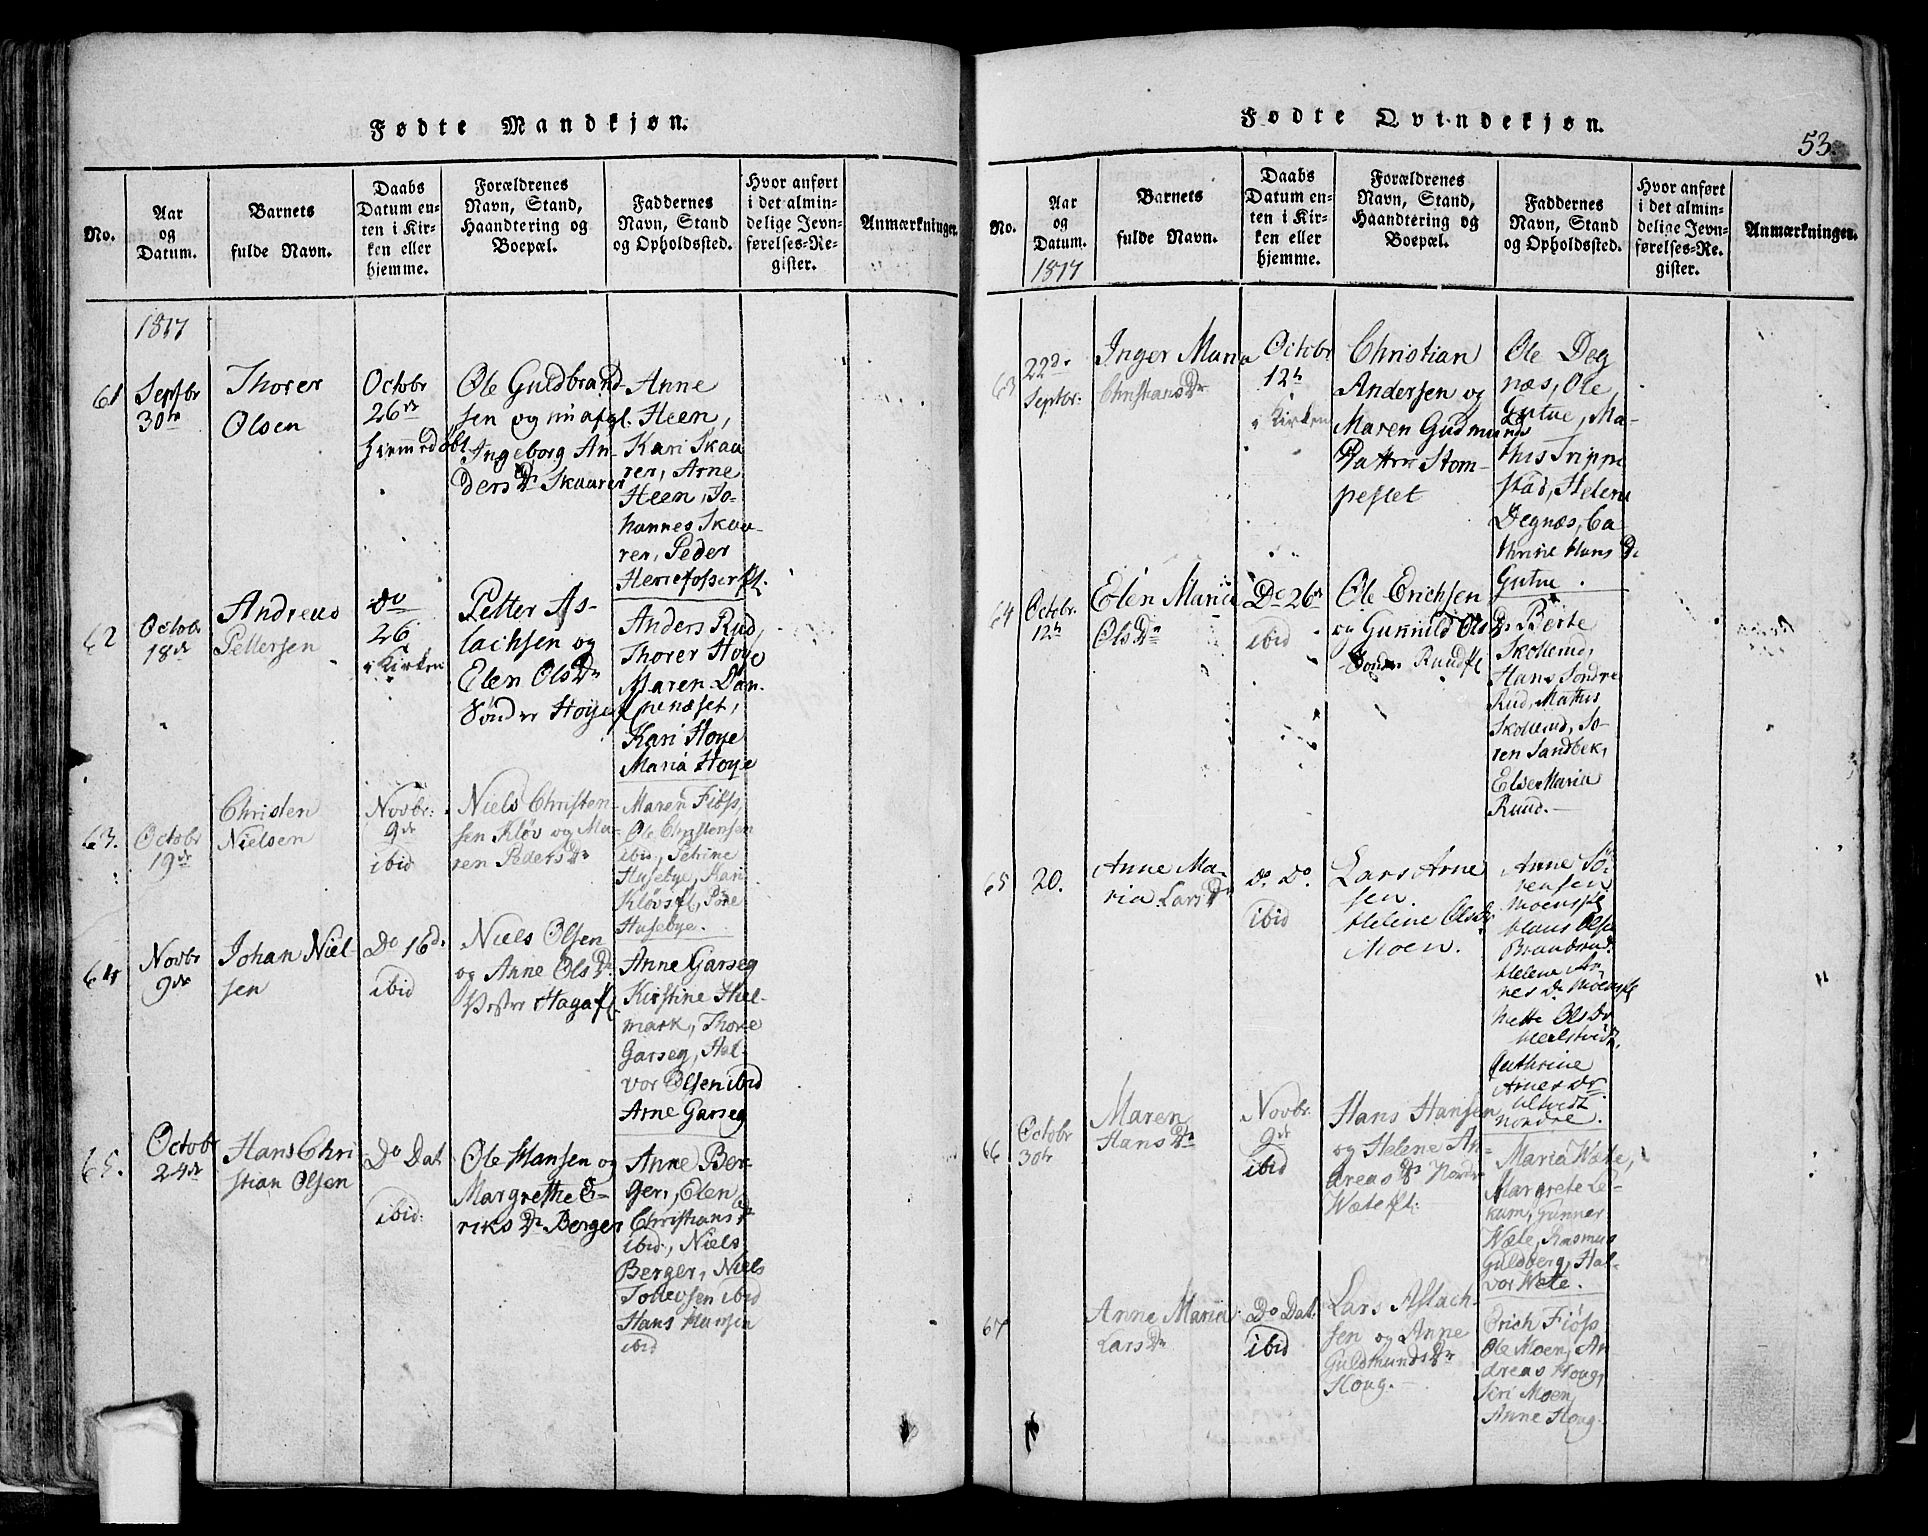 Fødte Mandkjøn.
No.
Aar
og
Datum.
Barnets
fulde Navn.
Daabs
Datum en-
ten i Kir-
ken eller
hjemme.
Forældrenes
Navn, Stand,
Haandtering og
Boepæl.
Faddernes
Navn, Stand
og Opholdssted.
Hvor anført
i det almin-
delige Jevn-
førelses-Re-
gister.
Anmærkninger.
1817
61
Septbr
30te
Thorer
Olsen
Octobr
26de
hjemedøbt
Ole Guldbrand
sen og
Ingeborg An-
ders Dr Skaaren
Anne
Heen,
Kari Skaa
ren, Arne
Heen, Jo-
hannes Skaa-
ren, Peder
62
Octobr
18de
Andreas
Pettersen
do
26
i Kirken
Petter As-
lachsen og
Elen Ols Dr
Sønder Hoye
Anders Rud,
Thorer Hoye
Maren Dan-
penæset,
Kari Hoye
Maria Hoye
63.
Octobr
19de
Christen
Nielsen
Novbr:
9de
ibid
Niels Christen-
sen Kløv og Ma-
ren Peders Dr
Maren Fiøss,
Ole Christensen
ibid, Petrine
Husebye, Kari
Kløvs fl,
Husebye.
64
Novbr
9de
Johan Niel-
sen
Do 16d.
ibid
Niels Olsen
og Anne Ols Dr
Vester Haga fl.
Anne Garseg
Kirstine Hel-
mark, Thore
Garseg, Hal-
vor Olsen ibid
Arne Garseg
65.
Octobr
24de
Hans Chri
stian Olsen
Do Dat
ibid.
Ole Hansen og
Margrethe E-
riks Dr Berger
Anne Ber-
ger, Elen
Christians Dr
ibid, Niels
Berger, Niels
Tollevsen ibid
Hans Hansen
ibid
Fødte Qvindekjøn.
53.
No.
Aar
og
Datum.
1817
Barnets
fulde Navn.
Daabs
Datum en-
ten i Kir-
ken eller
hjemme.
Forældrenes
Navn, Stand,
Haandtering og
Boepæl.
Faddernes
Navn, Stand
og Opholdssted.
Hvor anført
i det almin-
delige Jevn-
førelses-Re-
gister.
Anmærkninger.
63
22de
Septbr:
Inger Maria
Christians Dr
Octobr
12te
i Kirken
Christian
Andersen og
Maren Gudmunds
Datter Stom-
pestet
Ole Deg
næs, Ole
Gutue, Ma-
this Trippe
stad, Helene
Degnæs, Ca-
thrine Hans Dr
Gutue.
64
Octobr.
12te
Elen Maria
Ols Dr
Do 26de
ibid
Ole Erichsen
og Gunnild Ols Dr
Sønder Ruud fl
Berte
Skollerud,
Hans Sondre
Rud, Mathis
Skollerud, So-
ren Sandbek,
Else Maria
Ruud.
65
20.
Anne Ma-
ria Lars Dr
do. do.
ibid
Lars Arne
sen.
Helene Ols Dr
Moen.
Anne Sø-
rensen
Moens fl
Hans Olsen
Brandrud.
Helene Ar-
nes Dr Moens fl
Mette Ols Dr
Cathrine
Arnes Dr
Ultvedt
nordre.
66
Octobr
30te
Maren
Hans Dr
Novbr.
9de
ibid
Hans Hansen
og Helene An-
dreas Dr Nordr
Wæte fl:
Maria Wæte,
Margrete Le-
kum, Gunner
Wæte, Rasmus
Guldberg, Hal-
vor Wæte.
67
Anne Maria
Lars Dr
Do Dat.
ibid
Lars Aslach-
sen og Anne
Guldmunds Dr
Houg.
Erich Fiøss
Ole Moen, An
dreas Houg,
Siri Moen,
Anne Houg.